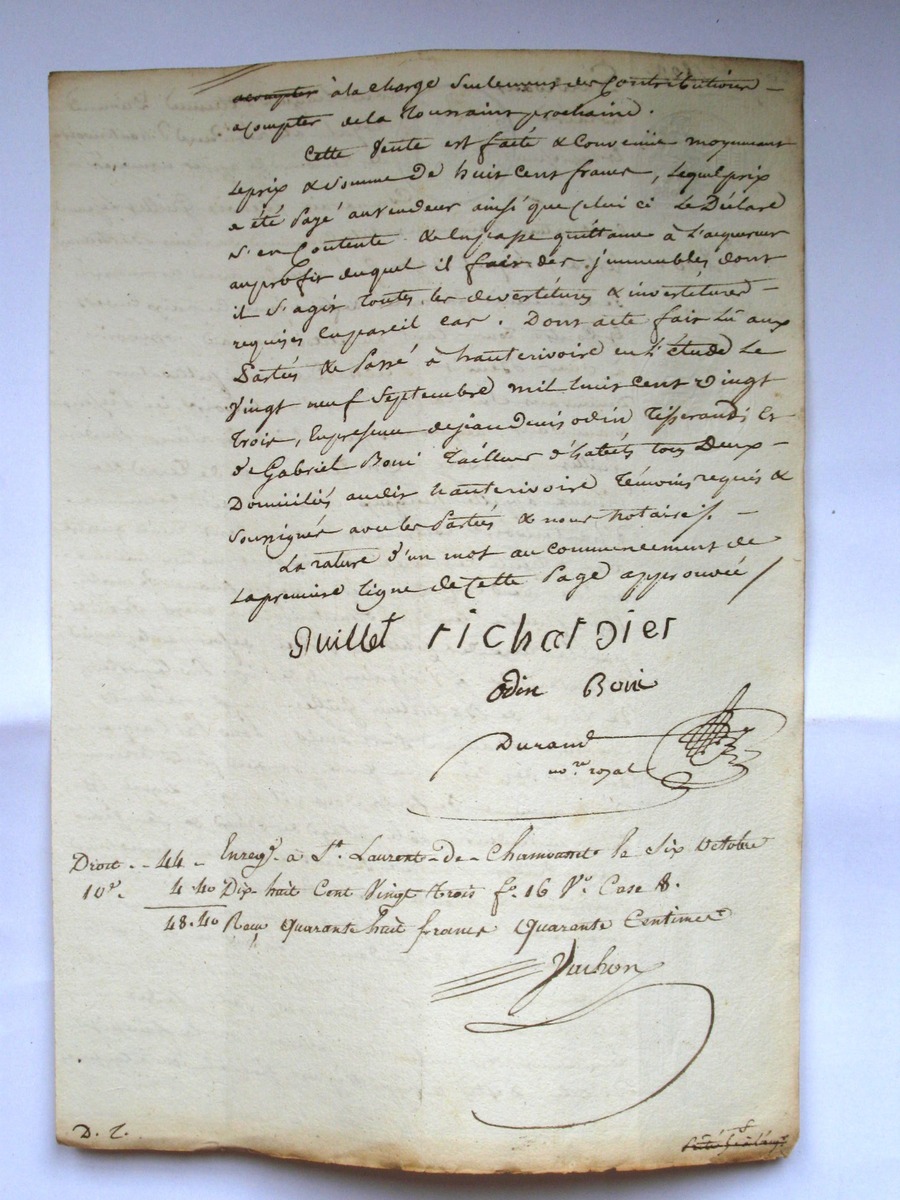 acompter à la charge seulement des Contributions -
acompter de la Toussaint prochaine.
Cette Vente est faite & Convenüe moyennant
le prix & somme de huit Cent francs, lequel prix
a été Payé au vendeur ainsi que Celui ci Le Déclare
s'en Contente & en passe quittance à L'acquereur
au profit duquel il fait des jmmeubles dont
il s'agit toutes les devestitures & investitures -
requises en pareil cas. Dont acte fait Lu aux
Parties & Passé à hauterivoire en L'étude Le
Vingt neuf Septembre mil huit cent vingt
Trois, En presence de jean denis odin Tisserand, Et
de Gabriel Boni Tailleur d'habits tous Deux -
Domiciliés audit hauterivoire Témoins requis &
soussignés avec les Parties & nous notaire /. -
La rature d'un mot au commencement de
La premiere ligne de Cette Page approuvée /
Guillet richardier
odin Boni
Durand
no.re royal
Droit - - 44 - Enreg.é a St. Laurent-de-Chamousset le Six octobre
10e. 4.40 Dix-huit Cent Vingt trois fo. 16 Vo. Case 8.
48.40 Reçu Quarante huit francs Quarante Centimes
Vachon
D. T.